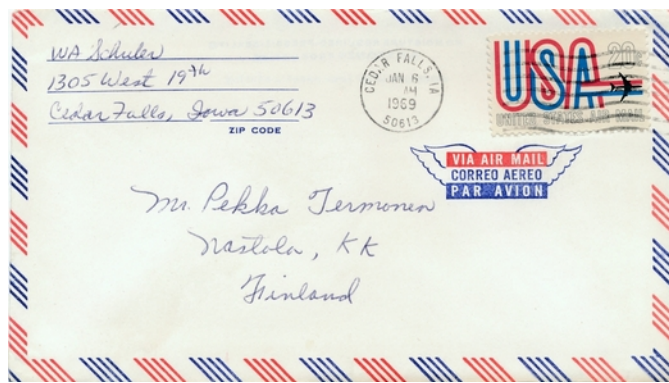 WA Schuler
1305 West 19th
Cedar Falls, Iowa 50613
ZIP CODE
CEDAR FALLS, IA
JAN 6
AM
1969
50613
USA 20c
UNITED STATES AIR MAIL
VIA AIR MAIL
CORREO AEREO
PAR AVION
Mr. Pekka Termonen
Nastola, KK
Finland